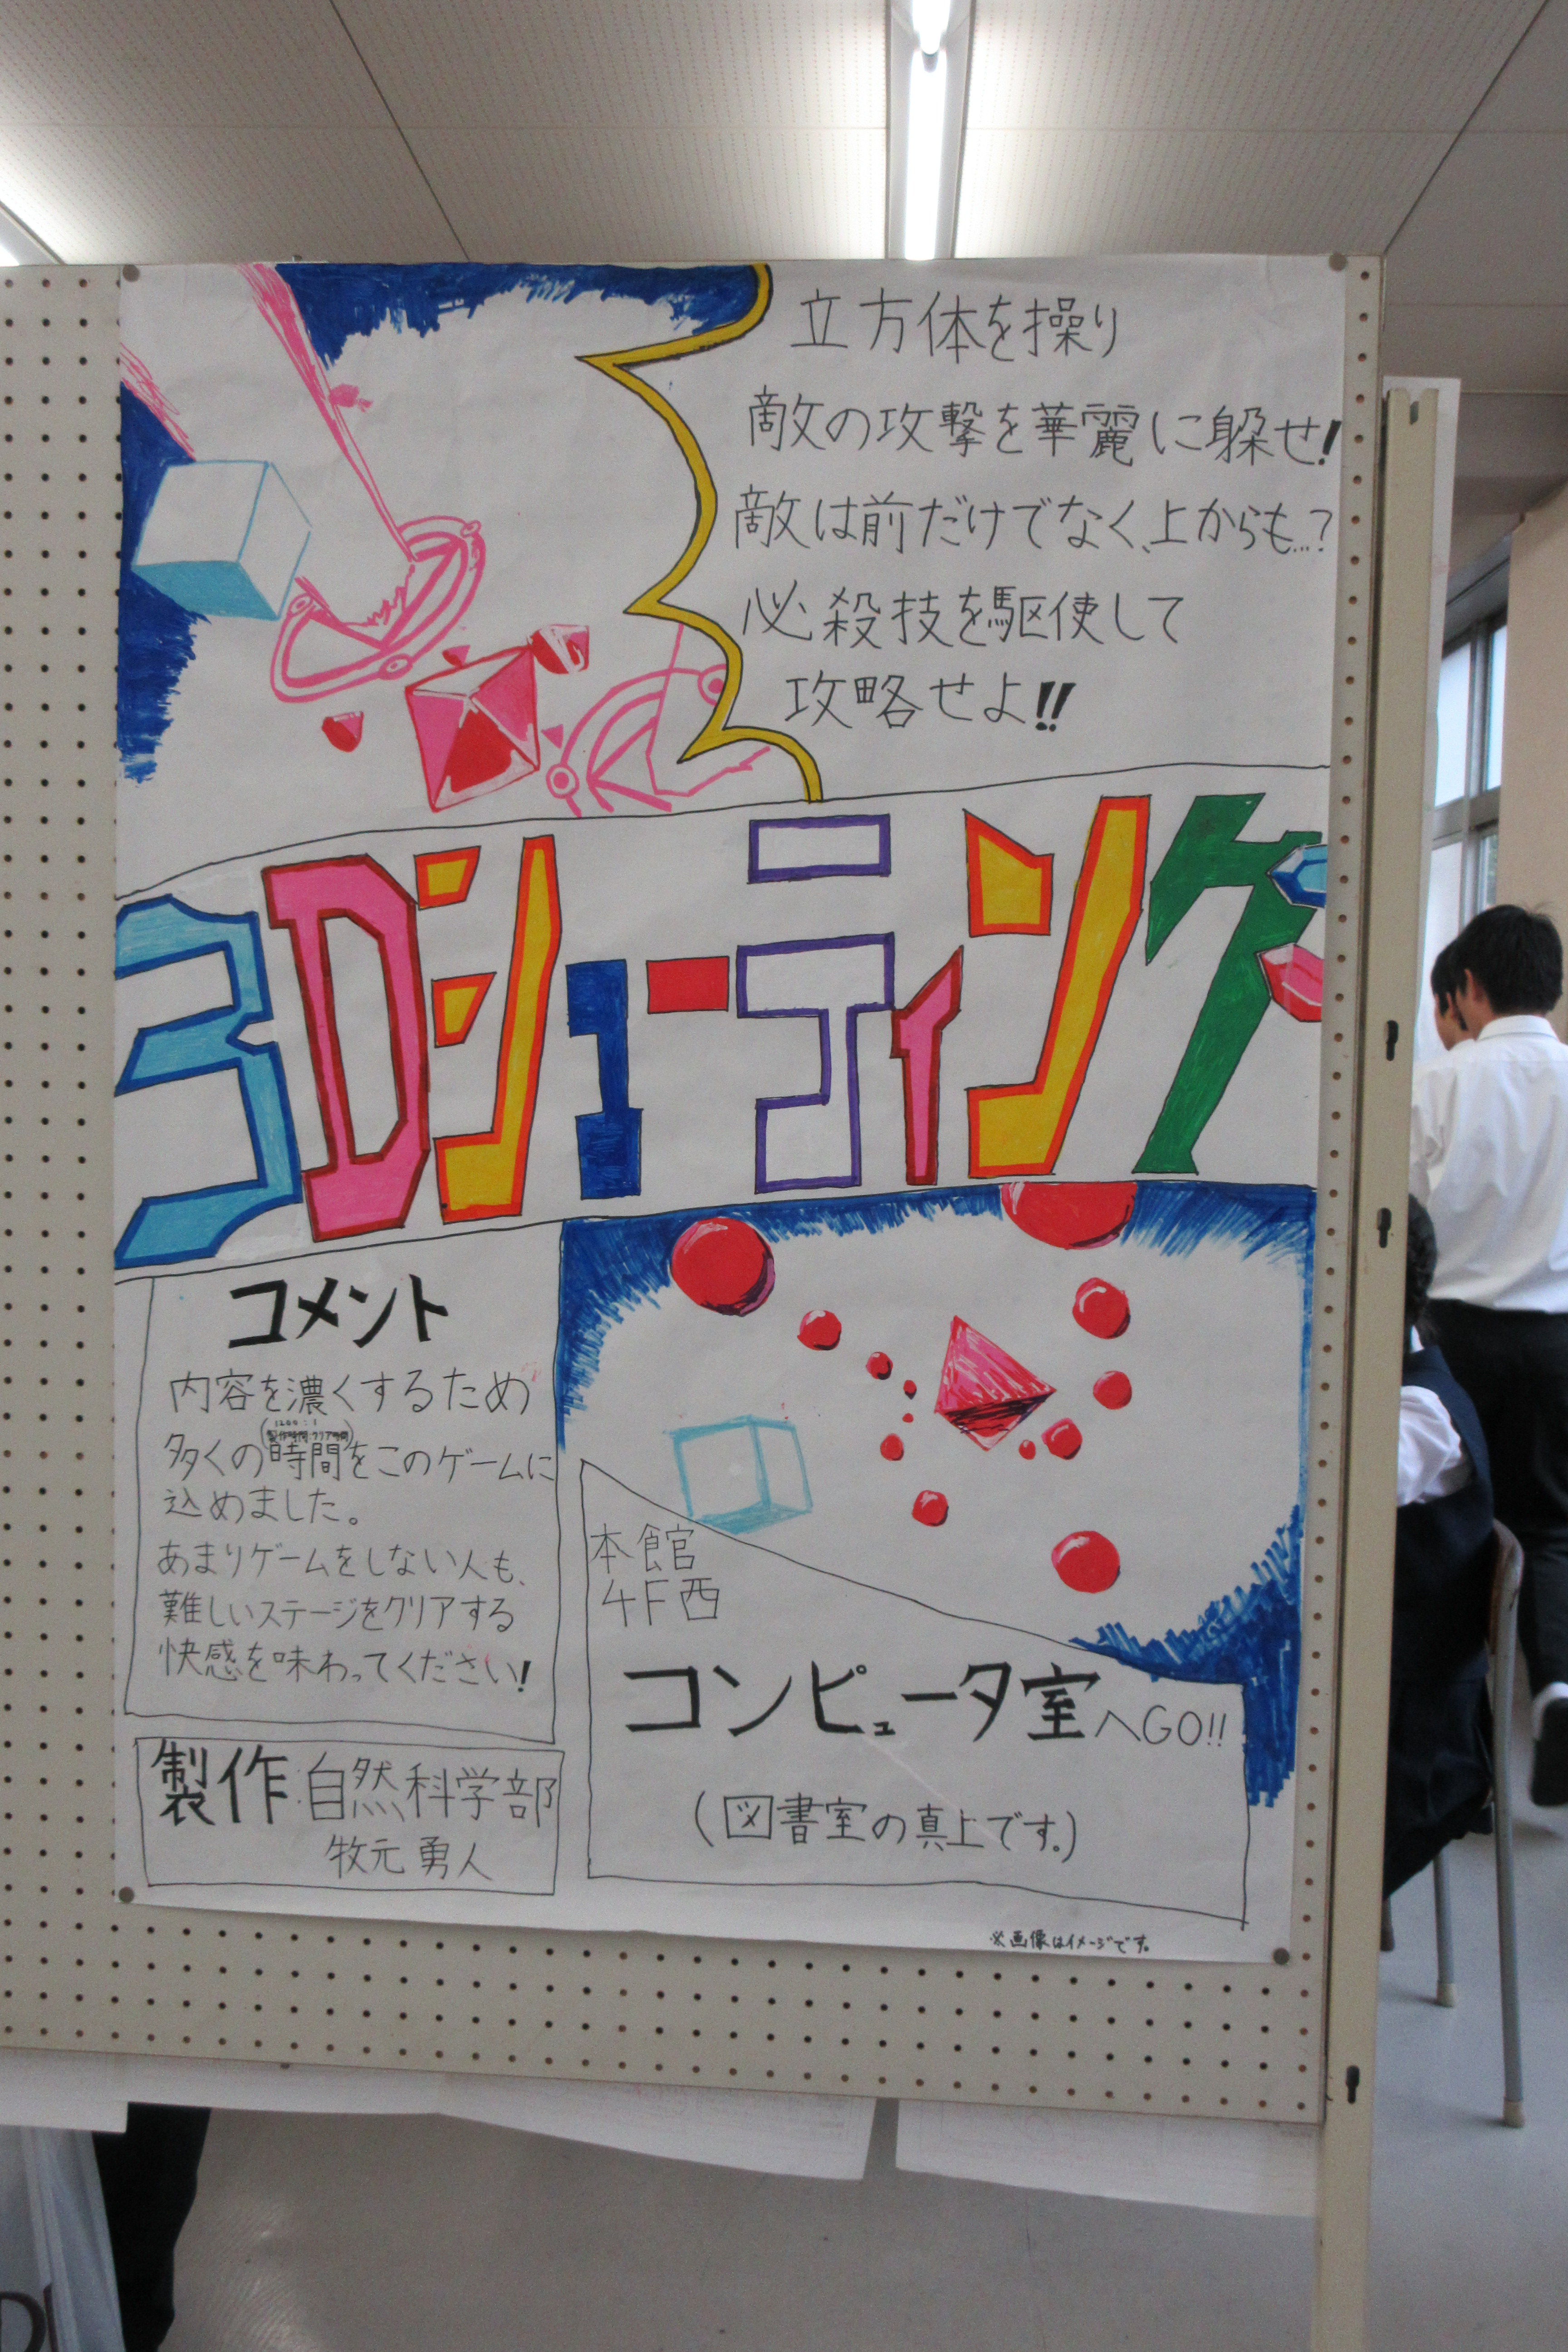 立方体を操り
敵の攻撃を華麗に躱せ!
敵は前だけでなく、上からも…?
必殺技を駆使して
攻略せよ!!
3Dシューティング
コメント
内容を濃くするため
1200:1
製作時間:クリア時間
多くの(時間)をこのゲームに
込めました。
あまりゲームをしない人も、
難しいステージをクリアする
快感を味わってください!
製作:自然科学部
牧元勇人
本館
4F西
コンピュータ室へGO!!
(図書室の真上です。)
※画像はイメージです。